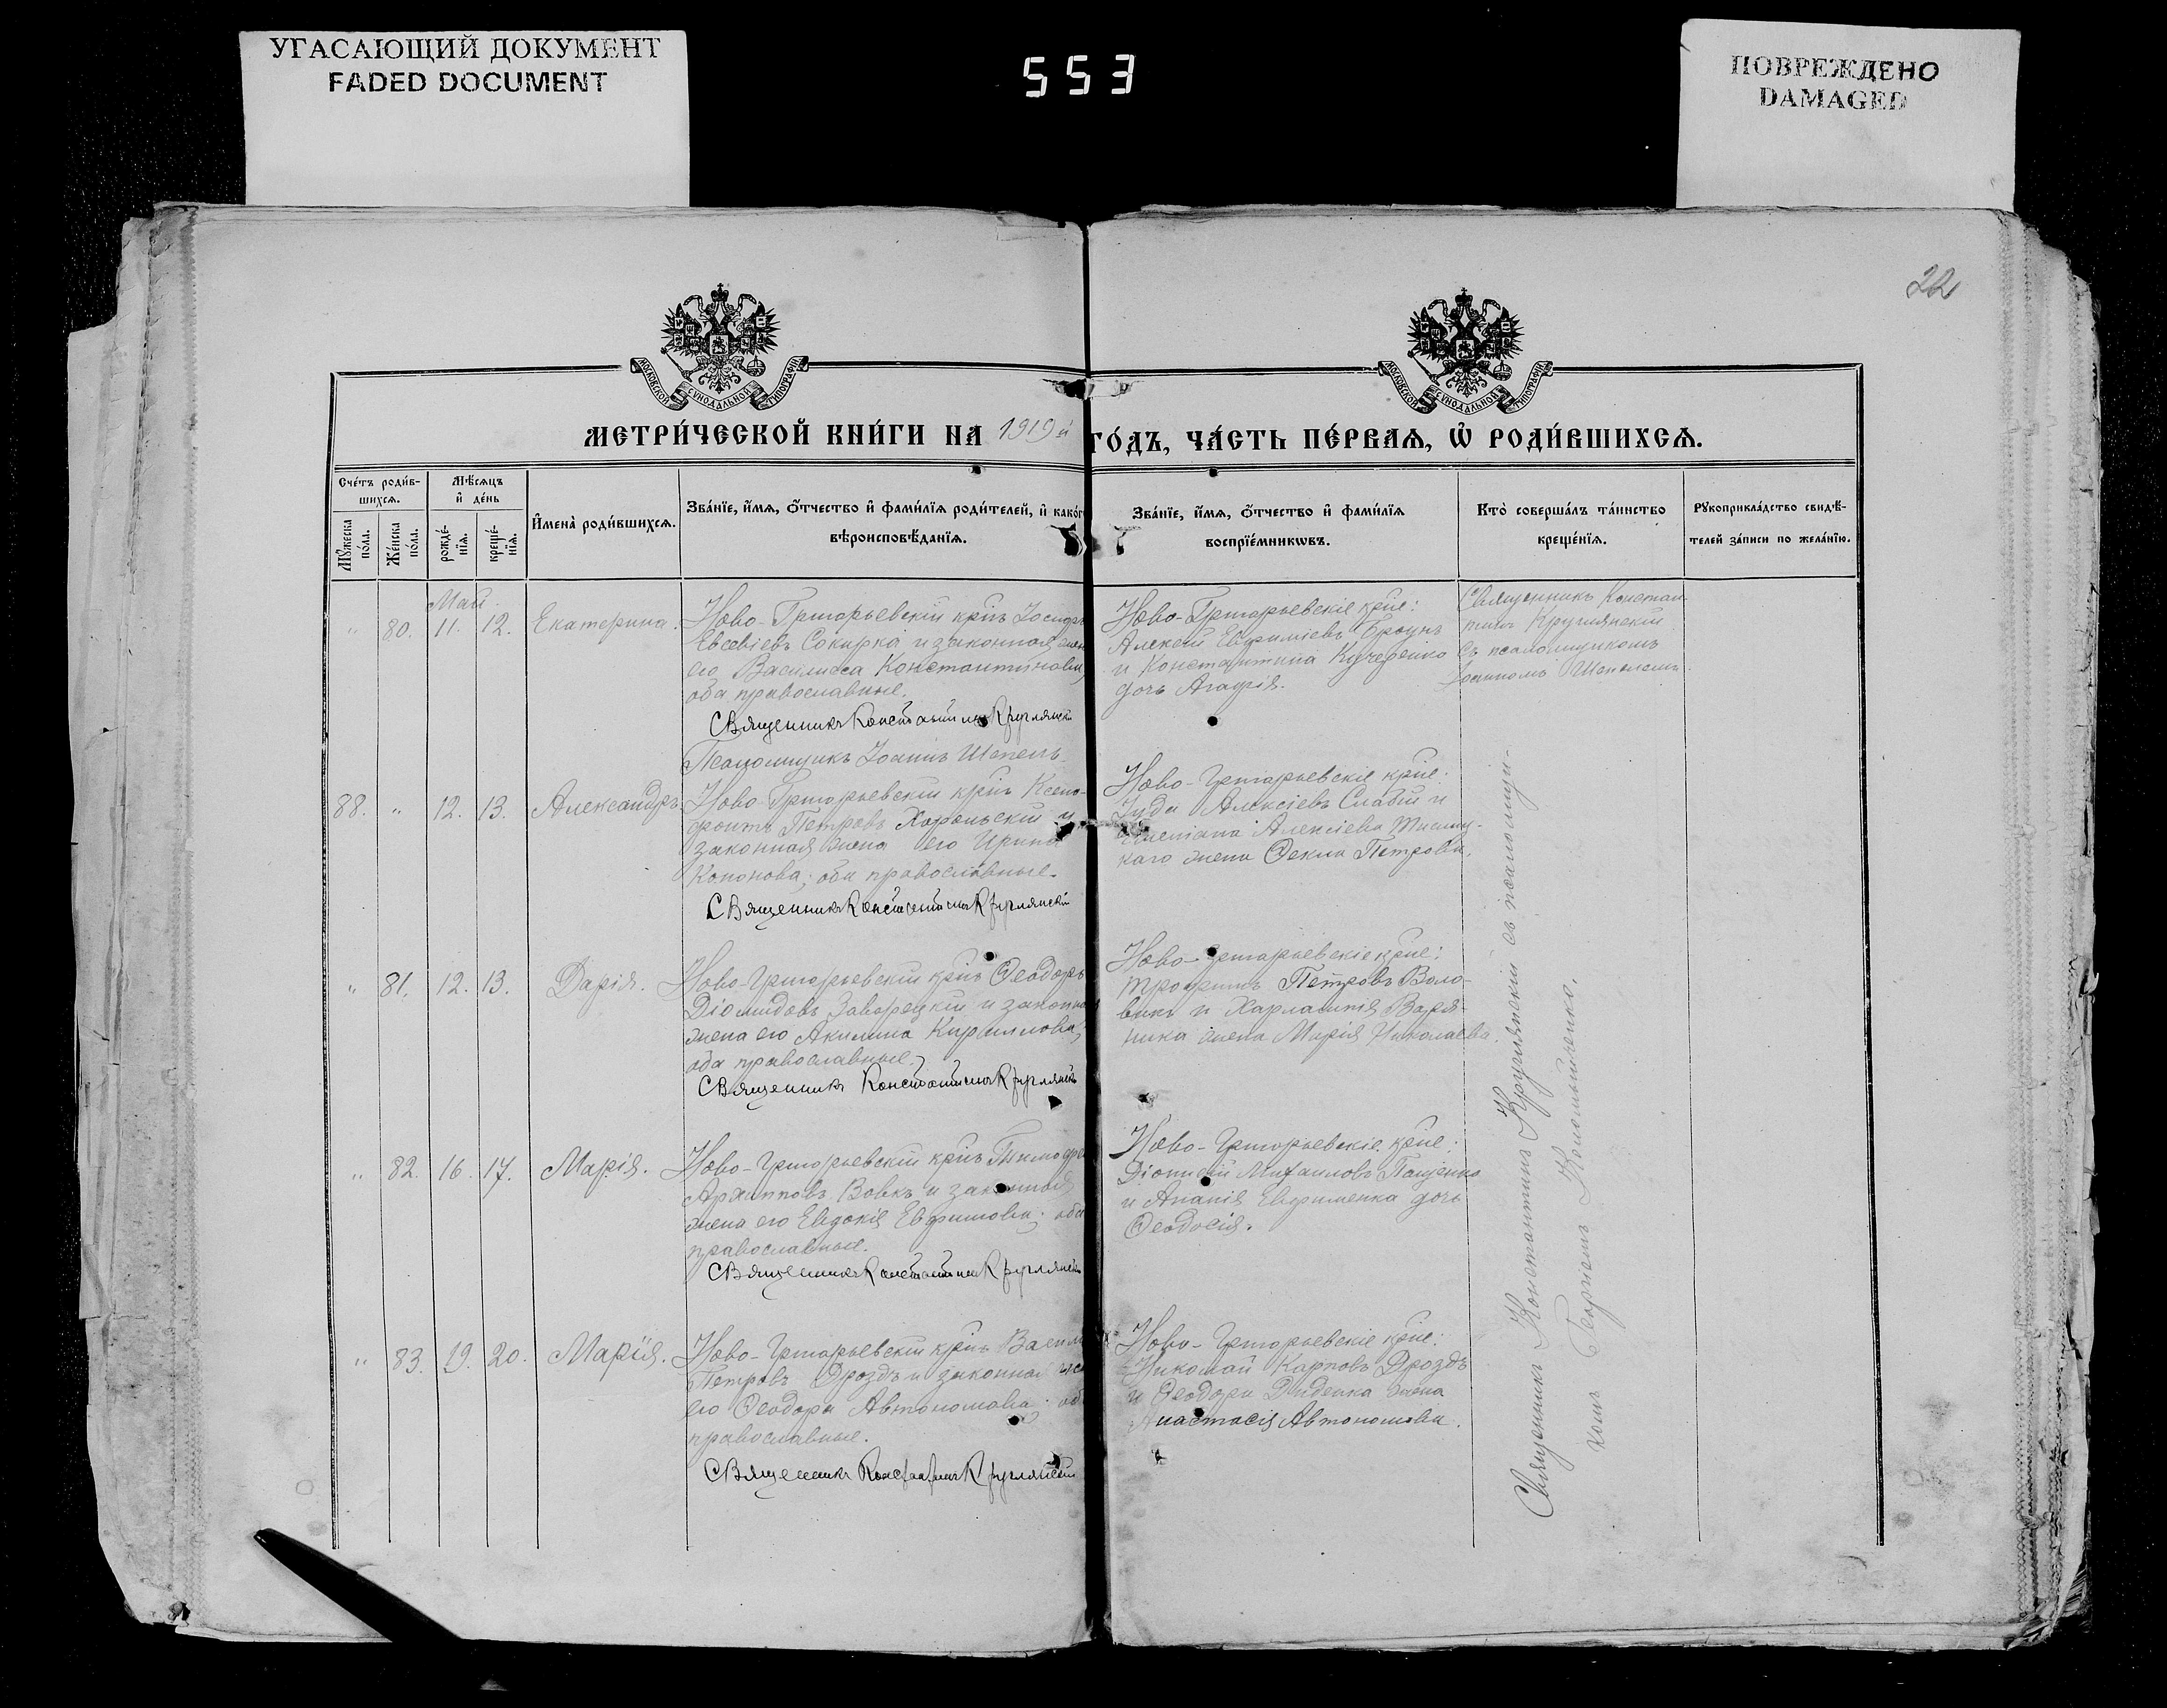 УГАСАЮЩИЙ ДОКУМЕНТ
FADED DOCUMENT
553
ПОВРЕЖДЕНО
DAMAGED
22
МОСКОВСКОЙ СУНОДАЛЬНОЙ ТИПОГРАФІИ
МОСКОВСКОЙ СУНОДАЛЬНОЙ ТИПОГРАФІИ
МЕТРИ́ЧЕСКОЙ КНИ́ГИ НА 1919й ГО́ДЪ, ЧА́СТЬ ПЕ́РВАѦ, Ѡ҆ РОДИ́ВШИХСѦ.
Сче́тъ роди́в-
шихсѧ.
Мꙋ́жеска
по́ла.
Же́нска
по́ла.
Мѣ́сѧцъ
и҆ де́нь
рожде́-
нїѧ.
креще́-
нїѧ.
И҆мена̀ роди́вшихсѧ.
Зва́нїе, и҆́мѧ, ѻ҆́тчество и҆ фами́лїѧ роди́телей, и҆ како́г
вѣроисповѣ́данїѧ.
Зва́нїе, и҆́мѧ, ѻ҆́тчество и҆ фами́лїѧ
воспрїе́мникѡвъ.
Кто̀ соверша́лъ та́инство
креще́нїѧ.
Рꙋкоприкла́дство свидѣ́-
телей за́писи по жела́нїю.
Май.
" 80. 11. 12. Екатерина.
Ново-Григорьевскій крнъ
Евсевіевъ Сокирка и законная жен
его Василиса Константинова,
оба православные.
Священникъ Константинъ Круглянскій
Псаломщикъ Іоаннъ Шепель
Ново-Григорьевскіе крне:
Алексій Евфиміевъ Броунъ
и Константина Кучеренко
дочь Агафія.
Священникъ Констан-
тинъ Круглянскій
съ псаломщикомъ
Іоанномъ Шепелемъ.
88. " 12. 13. Александръ.
Ново-Григорьевскій крнъ Ксено-
фонтъ Петровъ Хорольскій и
законная жена его Ирина
Кононова; оба православные.
Священникъ Константинъ Круглянскій
Ново-Григорьевскіе крне:
Іуда Алексіевъ Слабій и
Алексіева
жена Ѳекла Петрова.
" 81. 12. 13. Дарія.
Ново-Григорьевскій крнъ Ѳеодоръ
Діомидовъ Заворецкій и законная
жена его Акилина Кириллова;
оба православные.
Священникъ Константинъ Круглянскій
Ново-Григорьевскіе крне:
Трофимъ Петровъ Воло-
викъ и Харлампія Варя-
ника жена Марія Николаева.
" 82. 16. 17. Марія.
Ново-Григорьевскій крнъ Тимофей
Архипповъ Вовкъ и законная
жена его Евдокія Евфимова; оба
православные.
Священникъ Константинъ Круглянскій
Ново-Григорьевскіе крне:
Діонисій Михаиловъ Пащенко
и Ананія Евфименка дочь
Ѳеодосія.
" 83. 19. 20. Марія.
Ново-Григорьевскій крнъ Васил
Петровъ Дроздъ и законная же
его Ѳеодора Автономова; об
православные.
Священникъ Константинъ Круглянскій
Ново-Григорьевскіе крне:
Николай Карповъ Дроздъ
и Ѳеодора Диденка жена
Анастасія Автономова.
Священникъ Константинъ Круглянскій съ псаломщи-
комъ Георгіемъ Компанійченко.